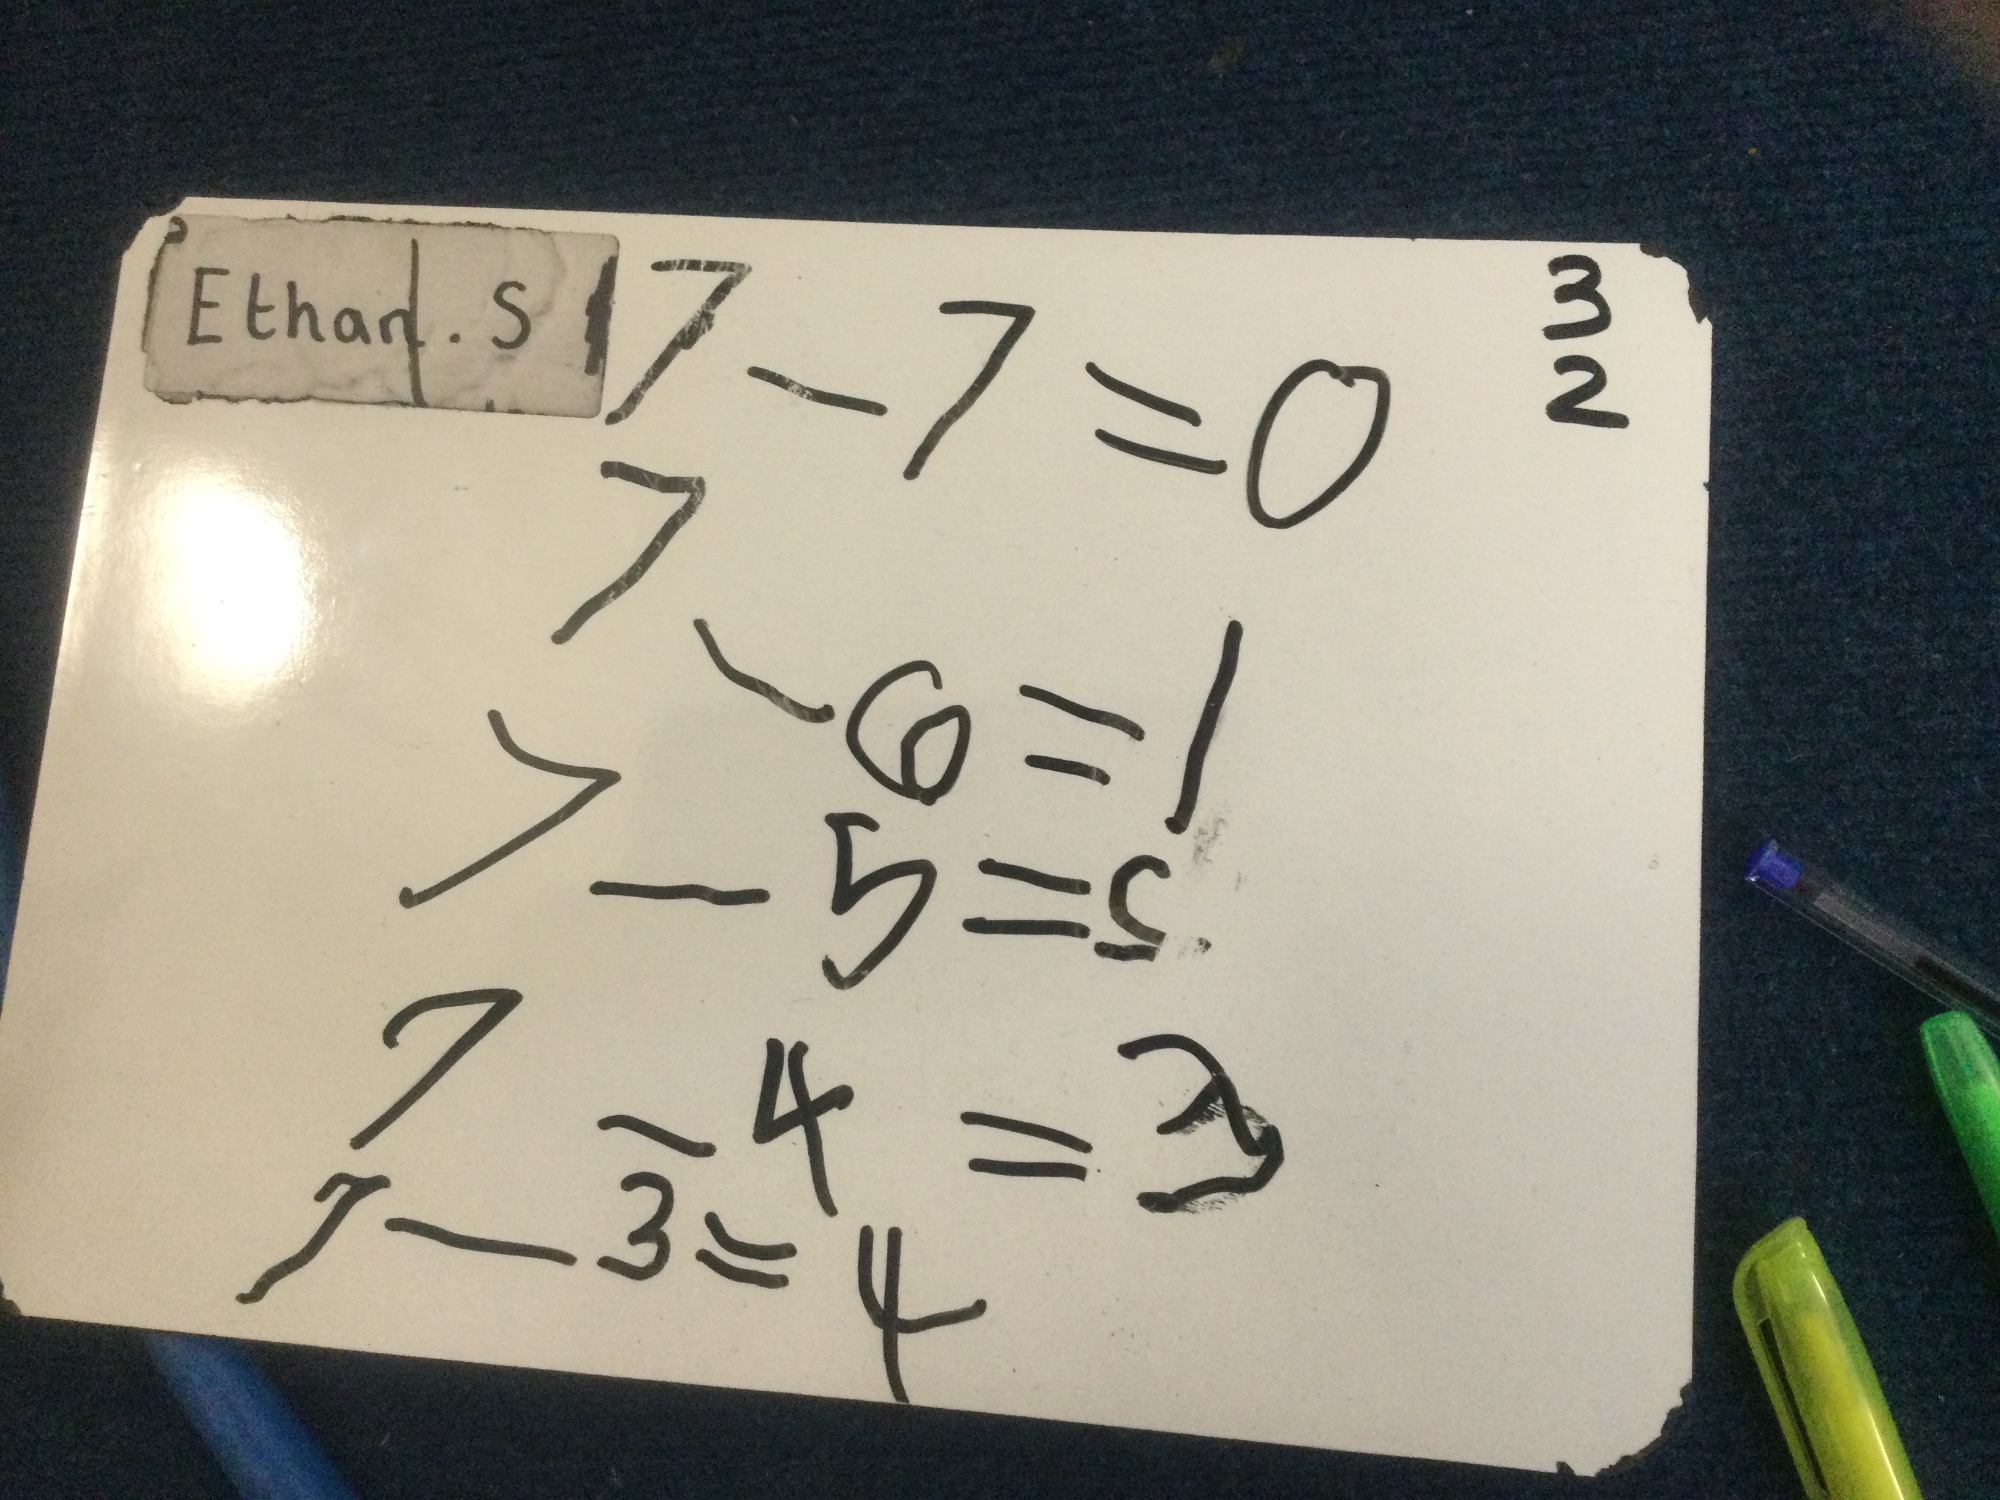 Ethan. S
7 - 7 = 0
3
2
7 - 6 = 1
7 - 5 = 2
7 - 4 = 3
7 - 3 = 4